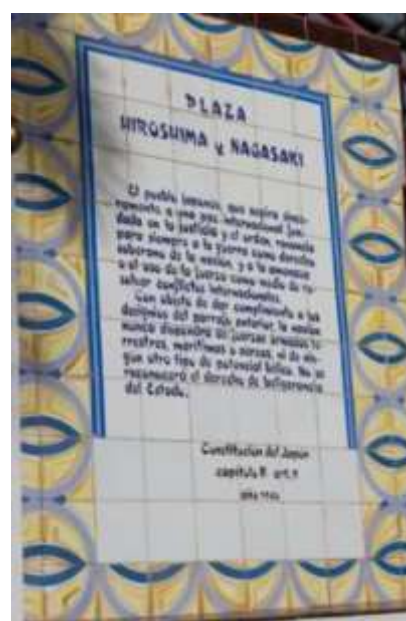 PLAZA
HIROSHIMA y NAGASAKI
El pueblo japonés, que aspira since-
ramente a una paz internacional fun-
dada en la justicia y el orden, renuncia
para siempre a la guerra como derecho
soberano de la nación, y a la amenaza
o al uso de la fuerza como medio de re-
solver conflictos internacionales.
Con objeto de dar cumplimiento a los
designios del párrafo anterior, la nación
nunca dispondrá de fuerzas armadas te-
rrestres, marítimas o aéreas, ni de nin-
gun otro tipo de potencial bélico. No se
reconocerá el derecho de beligerancia
del Estado.
Constitución del Japón
capítulo II art. 9
año